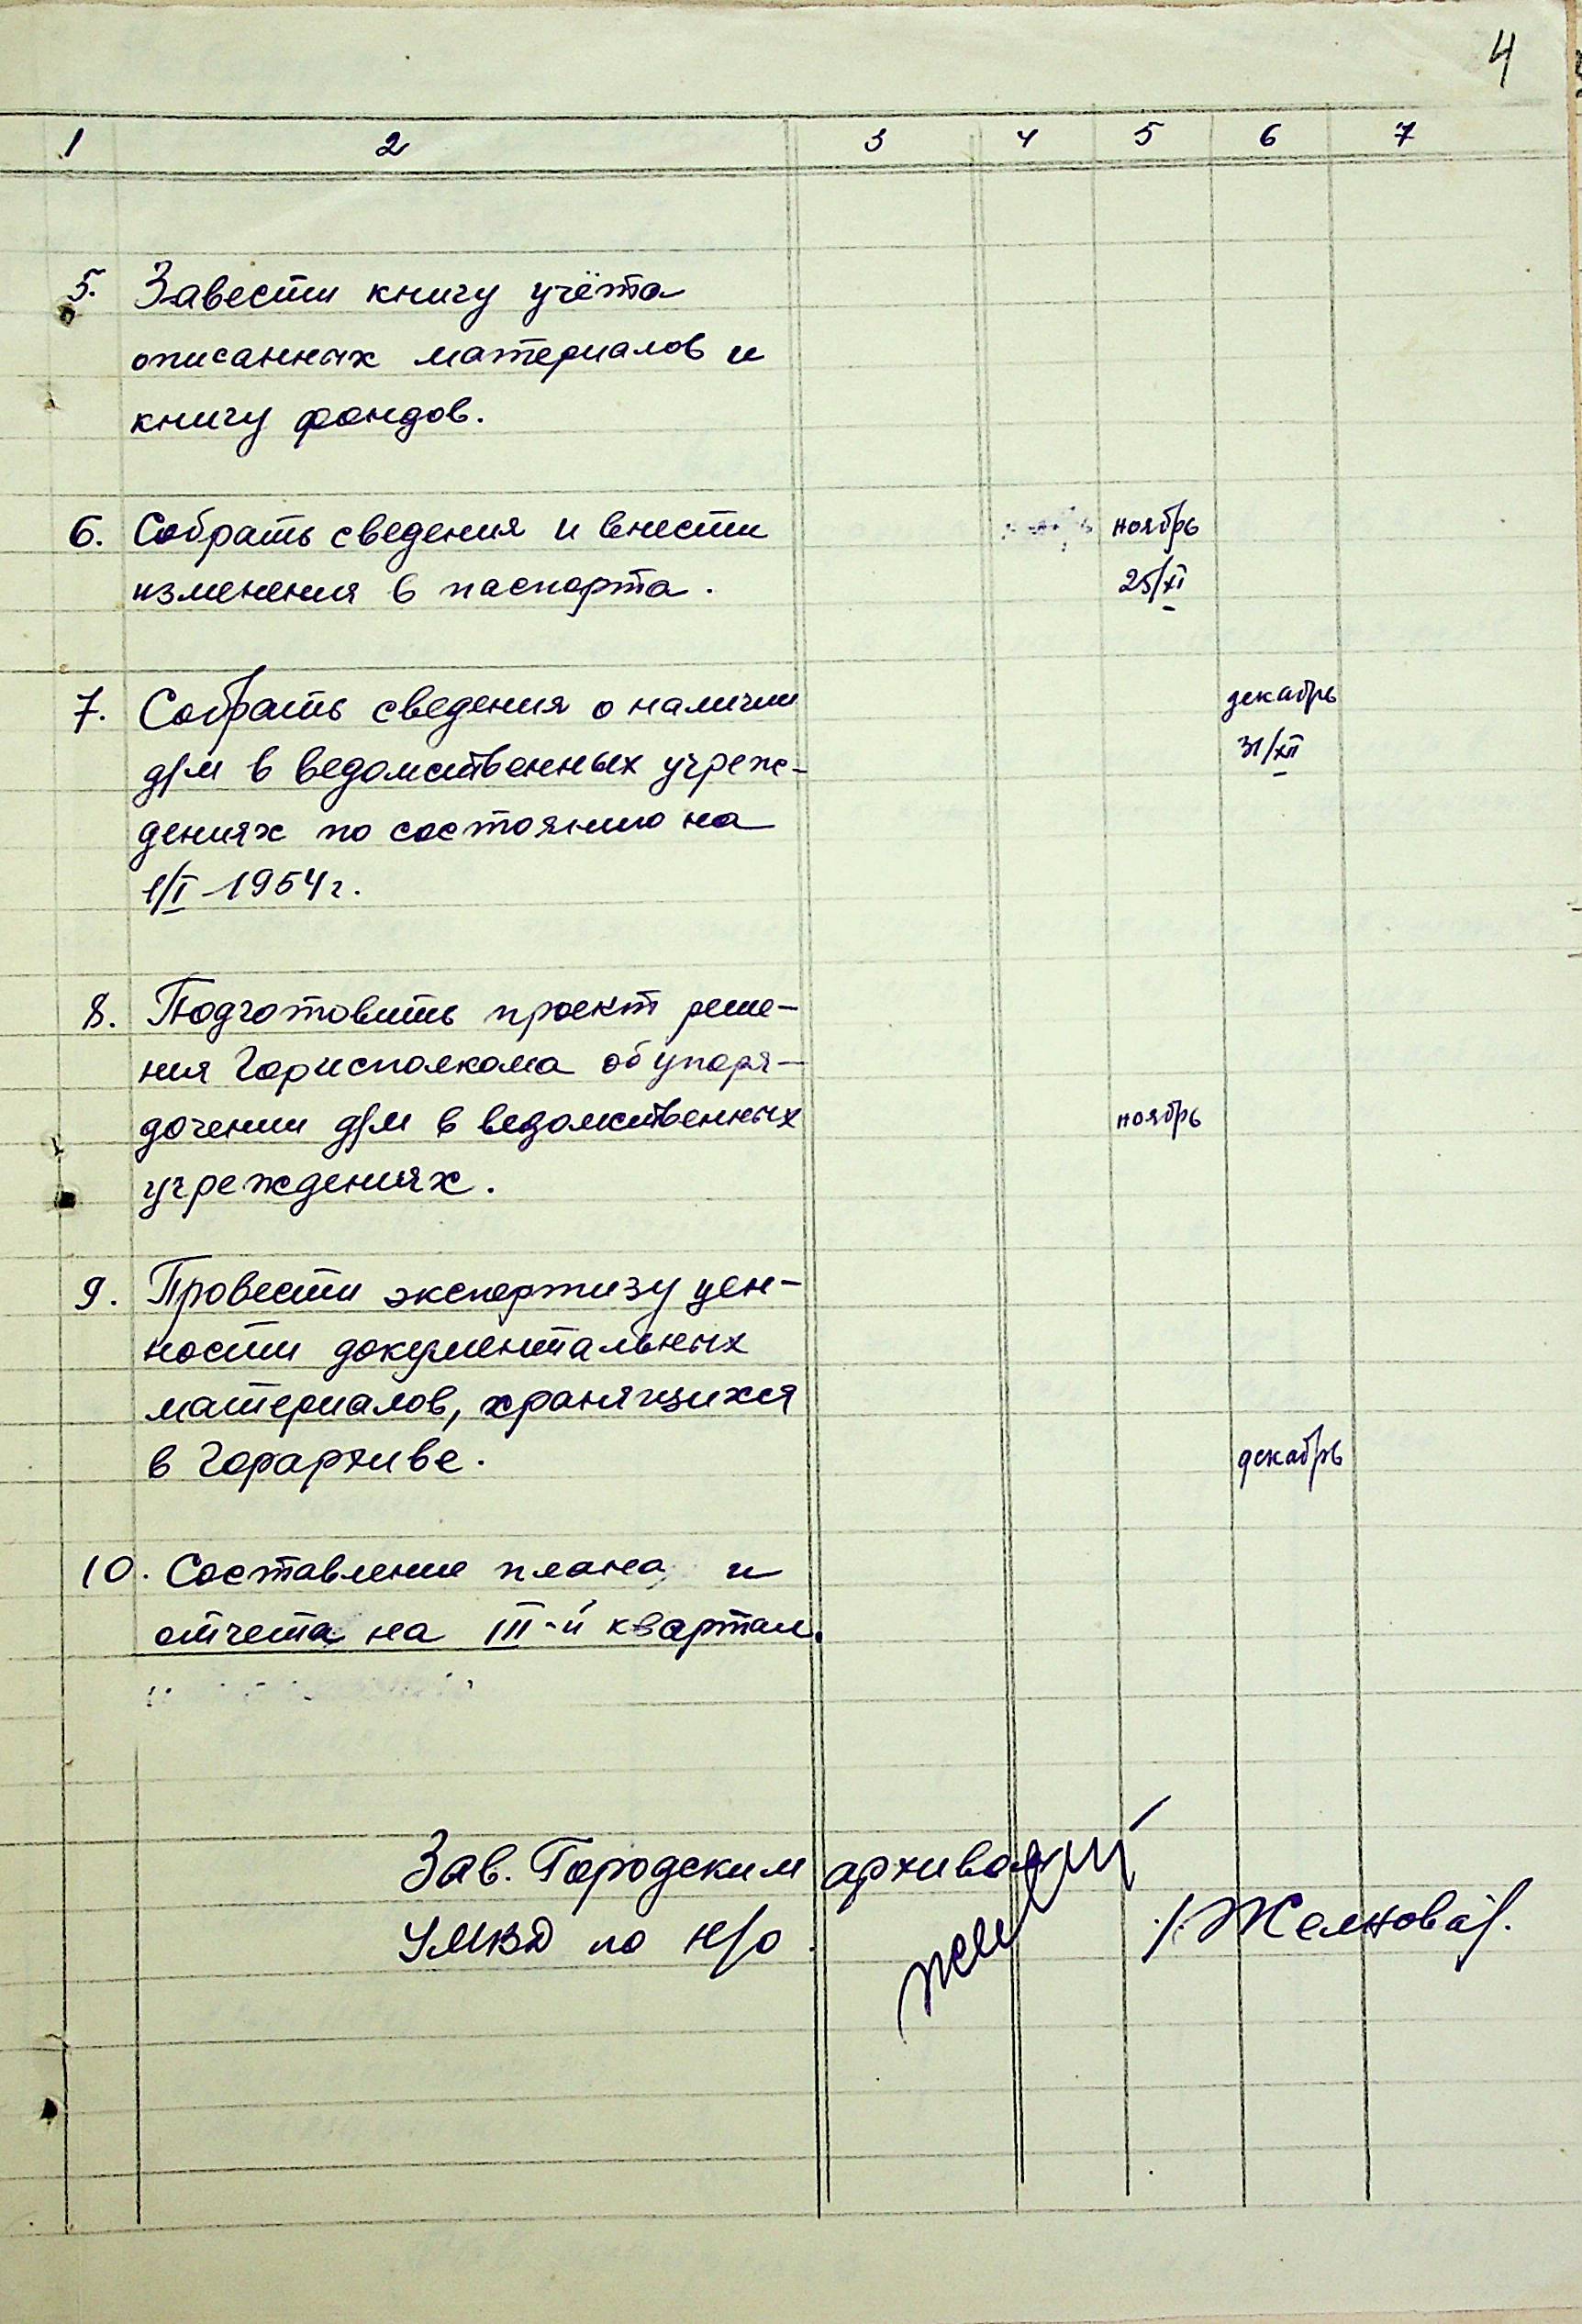 4
1 2 3 4 5 6 7
5. Завести книгу учёта
описанных материалов и
книгу фондов.
6. Собрать сведения и внести ноябрь
изменения в паспорта. 25/XI
7. Собрать сведения о наличии декабрь
д/м в ведомственных учреж- 31/XII
дениях по состоянию на
1/I-1954г.
8. Подготовить проект реше-
ния Горисполкома об упоря-
дочении д/м в ведомственных ноябрь
учреждениях.
9. Провести экспертизу цен-
ности документальных
материалов, хранящихся
в Горархиве. декабрь
10. Составление плана и
отчета на III-й квартал.
Зав. Городским архивом
УМВД по Н/О /Желнова/.